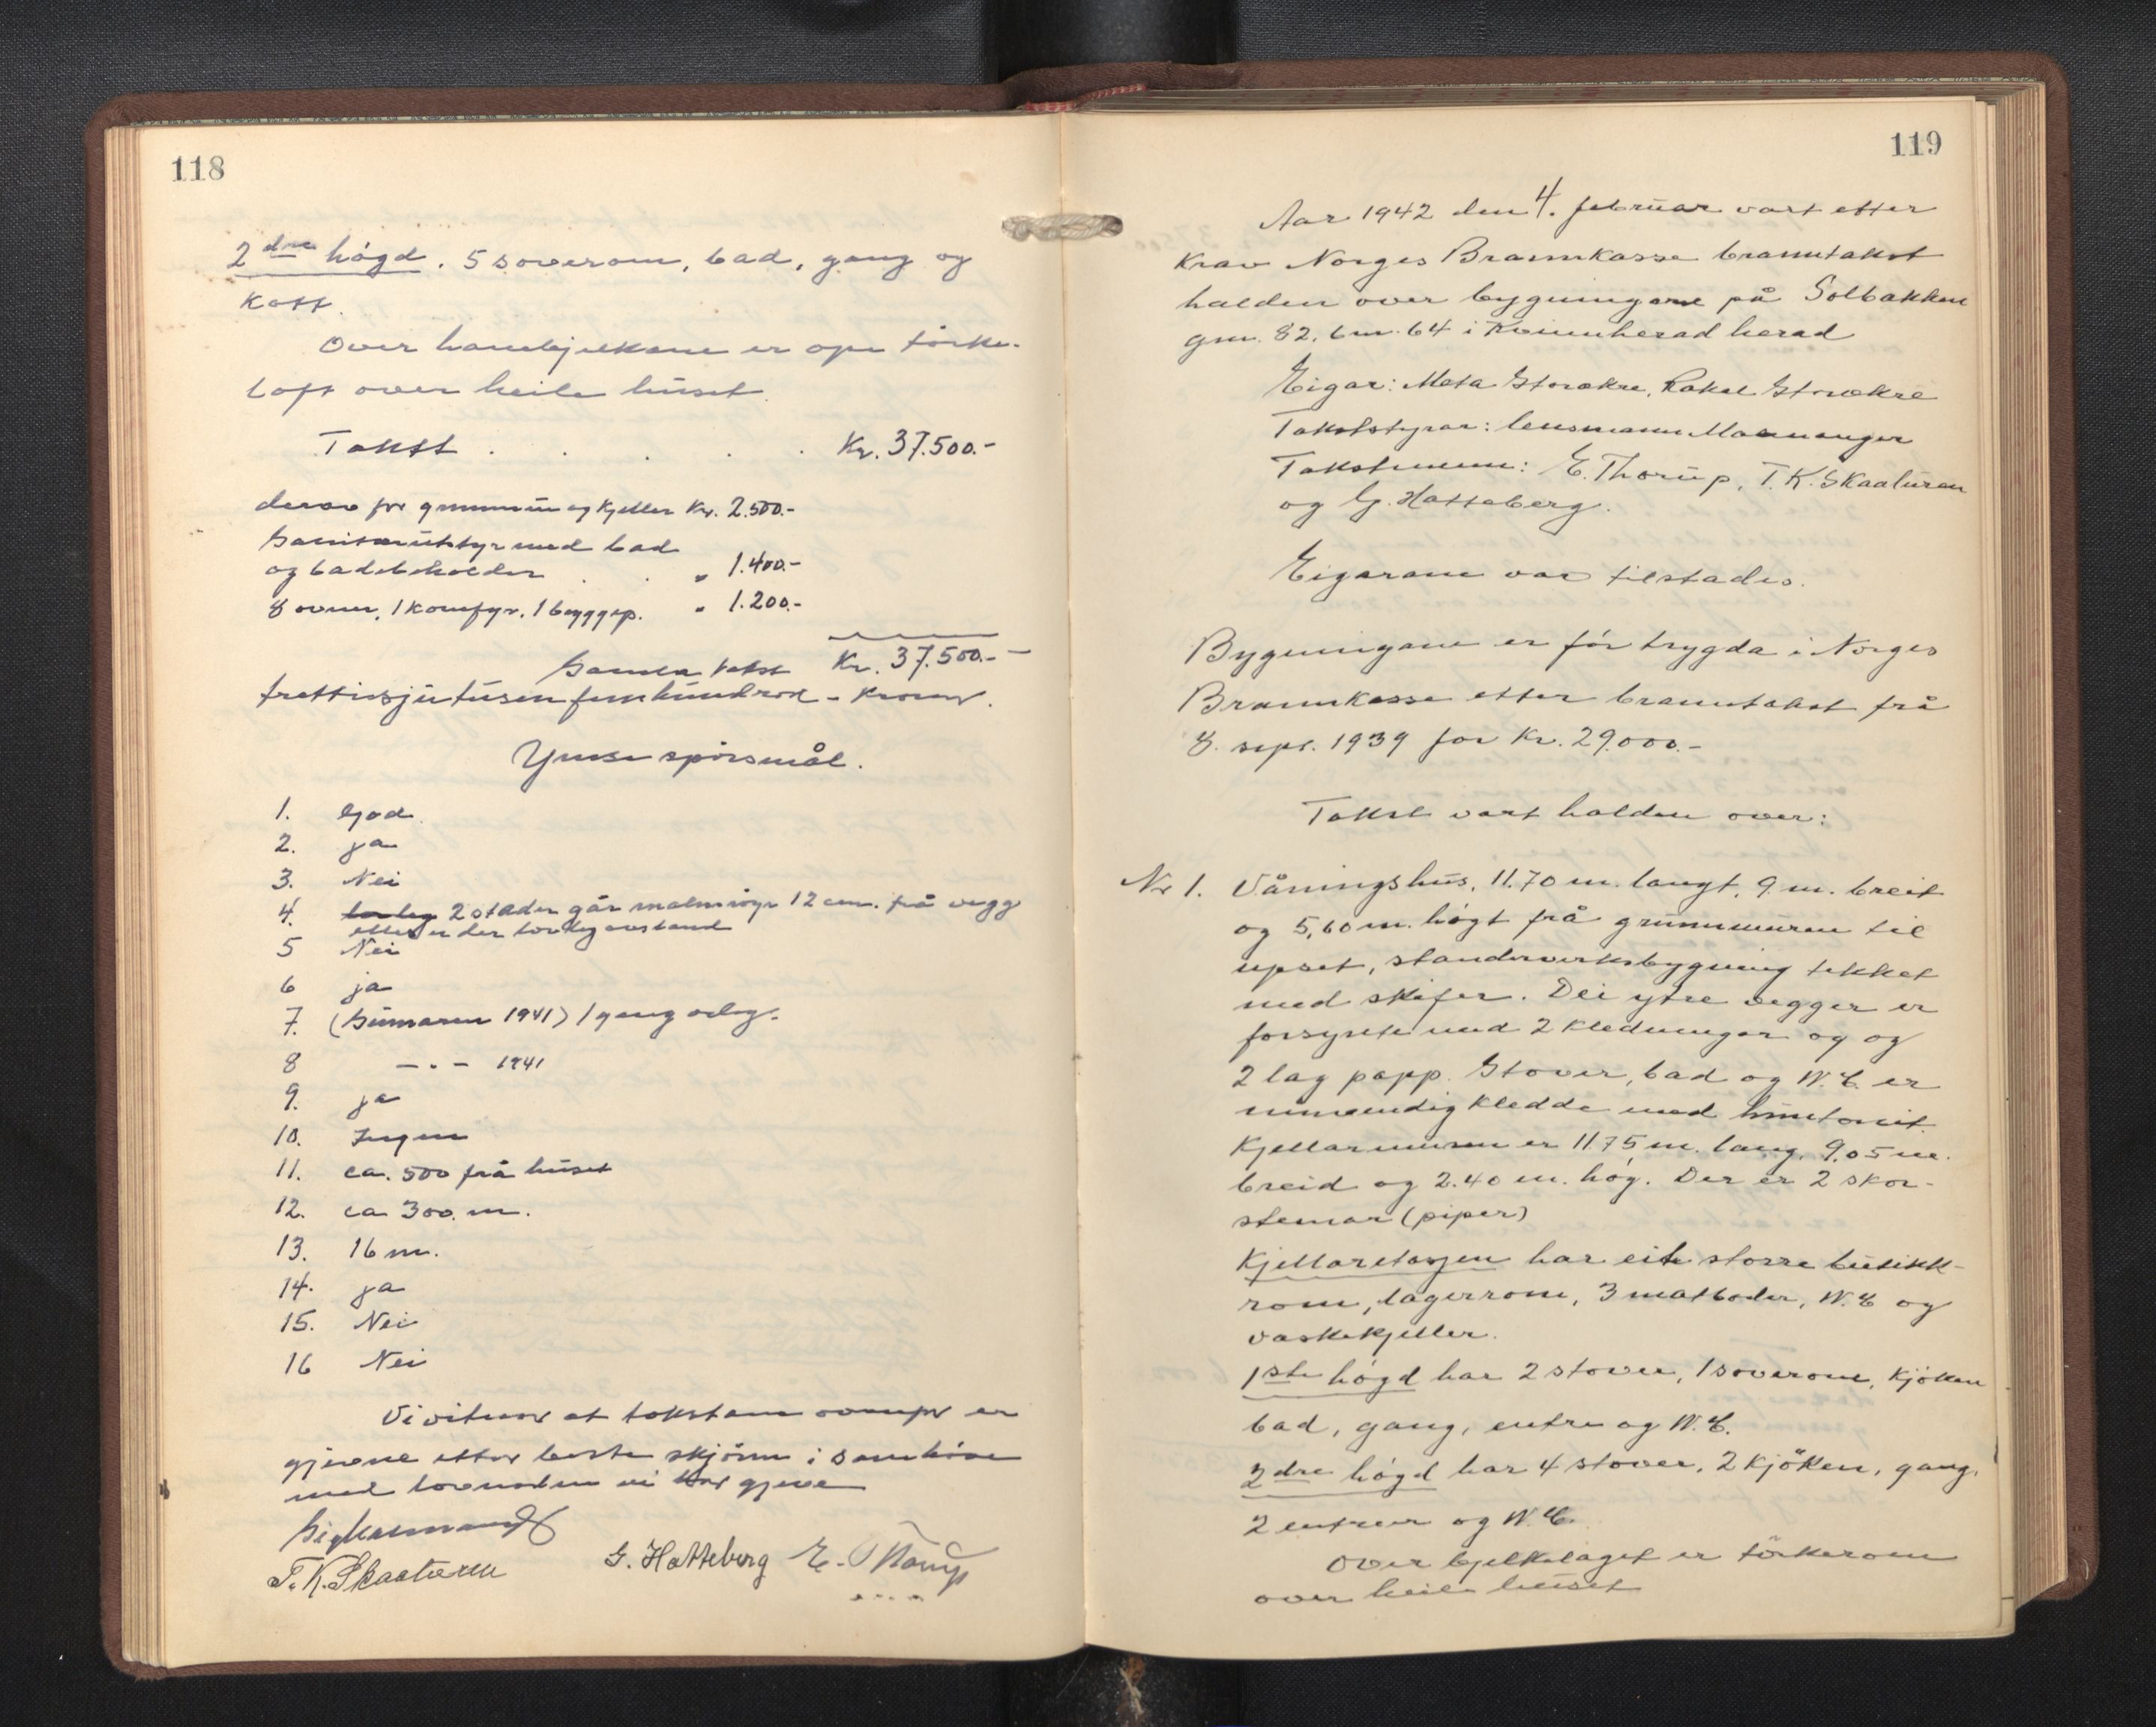 118
2dre högd. 5 soverom, bad, gang og
kott.
Over hanebjelkane er ope törke-
loft over heile huset.
Takst . . . . . Kr. 37.500.-
derav for grunnmur og kjeller Kr. 2.500.-
Sanitærutstyr med bad
og badebeholder . . " 1.400.-
8 ovner, 1 komfyr, 1 bryggep. " 1.200.-
Samla takst Kr. 37.500.-
trettisjutusen femhundrad - kroner.
Ymse spörsmål.
1. God.
2. ja
3. Nei
4. 2 stader går malmröyr 12 cm. frå vegg
elles er der lovleg avstand
5 Nei
6 ja
7. (Sumaren 1941) 1 gang årleg.
8 -.- 1941
9. ja
10. Ingen
11. ca. 500 frå huset
12. ca 300. m.
13. 16 m.
14. ja
15. Nei
16 Nei
Vi vitnar at takstane ovanfor er
gjevne etter beste skjönn i samhöve
med lovnaden vi har gjeve
T. K. Skaaluren G. Hatteberg E. Thorup
119
Aar 1942 den 4. februar vart etter
krav Norges Brannkasse branntakst
halden over bygningane på Solbakken
gnr. 82, bnr. 64 i Kvinnherad herad
Eigar: Meta Storækre, Rakel Storækre
Takststyrar: lensmann Mananger
Takstmenn: E. Thorup, T. K. Skaaluren
og G. Hatteberg.
Eigarane var tilstades.
Bygningane er för trygda i Norges
Brannkasse etter branntakst frå
8. sept. 1939 for Kr. 29.000.-
Takst vart halden over:
Nr 1. Våningshus, 11.70 m. langt, 9 m. breit
og 5,60 m. högt frå grunnmuren til
upset, standerverksbygning tekket
med skifer. Dei ytre vegger er
forsynte med 2 kledningar og og
2 lag papp. Stover, bad og W.C. er
innvendig kledde med huntonit.
Kjellarmuren er 11.75 m. lang, 9.05 m.
breid og 2.40 m. hög. Der er 2 skor-
steinar (piper)
Kjellaretasjen har eit större butikk-
rom, lagerrom, 3 matboder, W.C og
vaskekjeller.
1ste högd har 2 stover, 1 soverom, kjöken
bad, gang, entre og W.C.
2dre högd har 4 stover, 2 kjöken, gang,
2 entreer og W.C.
Over bjelkelaget er törkerom
over heile huset